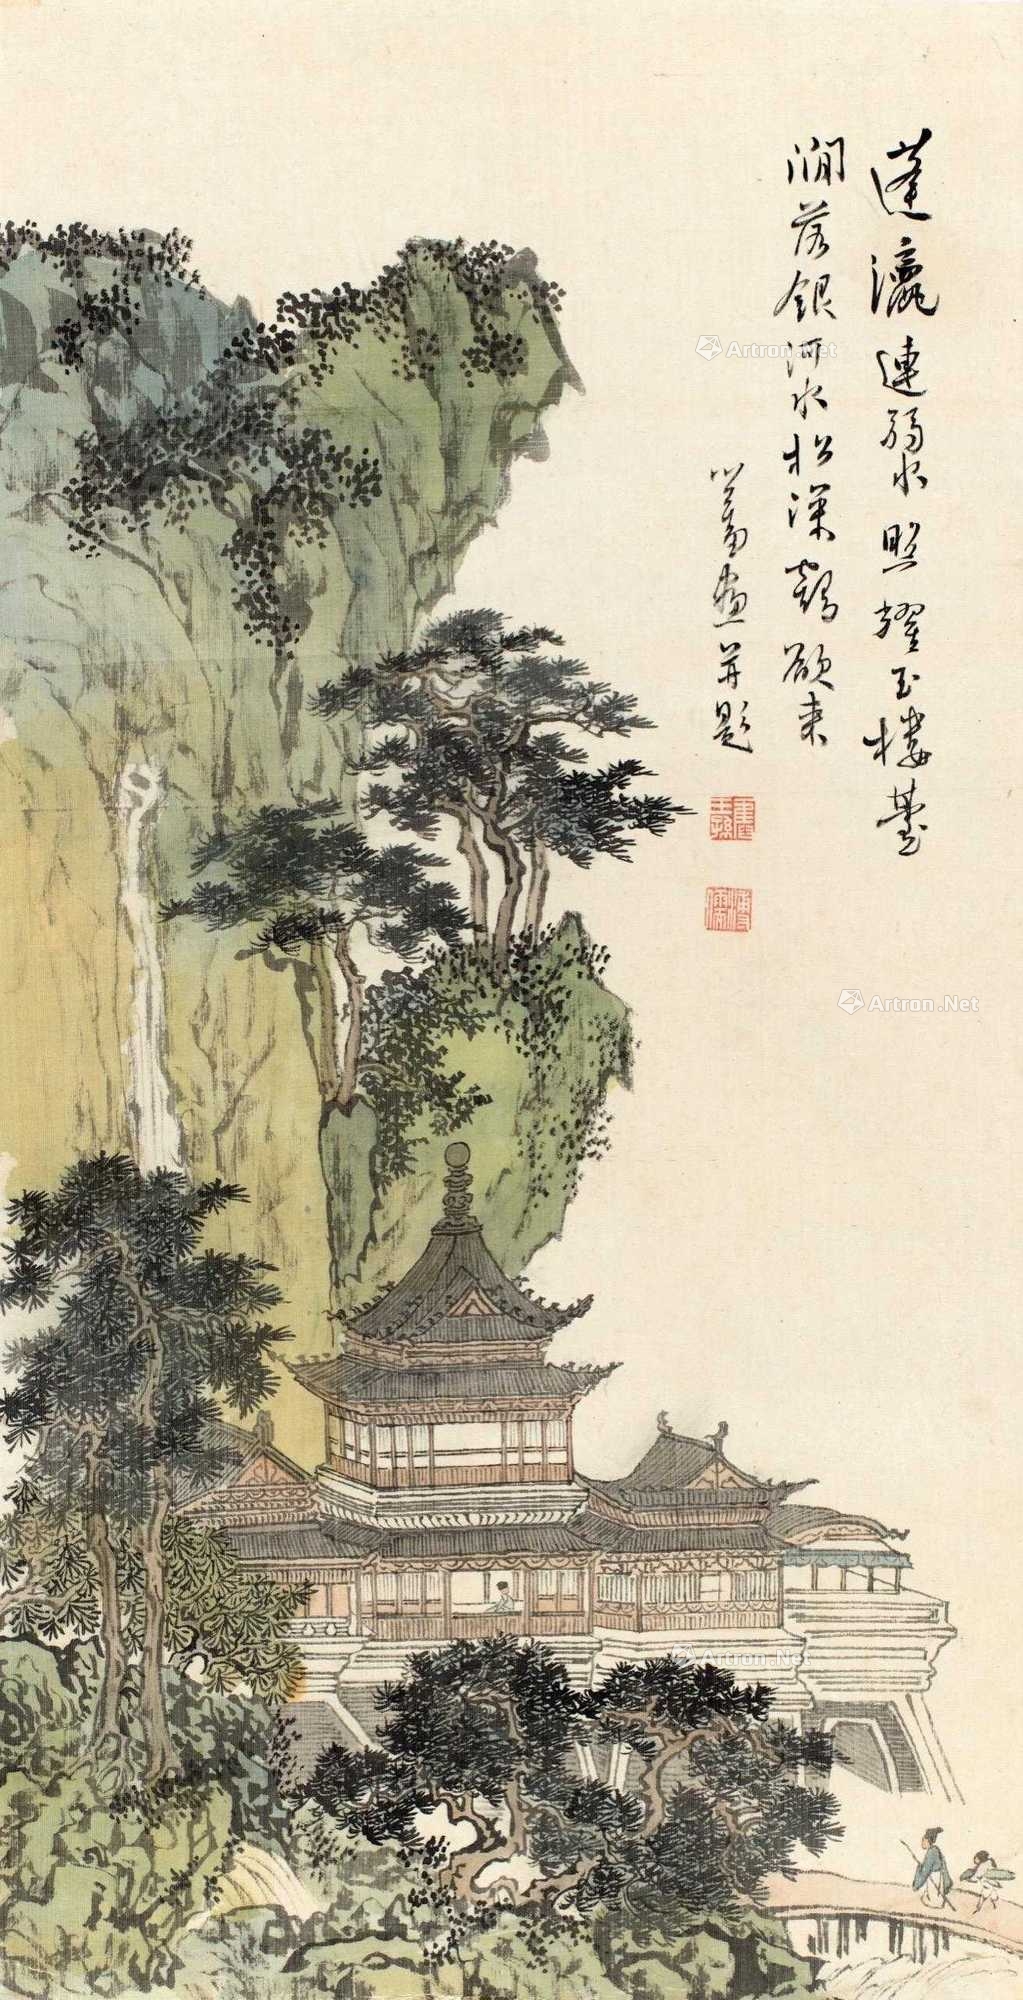 蓬瀛連弱水照耀玉樓臺
澗落銀河水松深鶴欲來
心畬畫并題
舊王孫
溥儒
Artron.Net
Artron.Net
Artron.Net